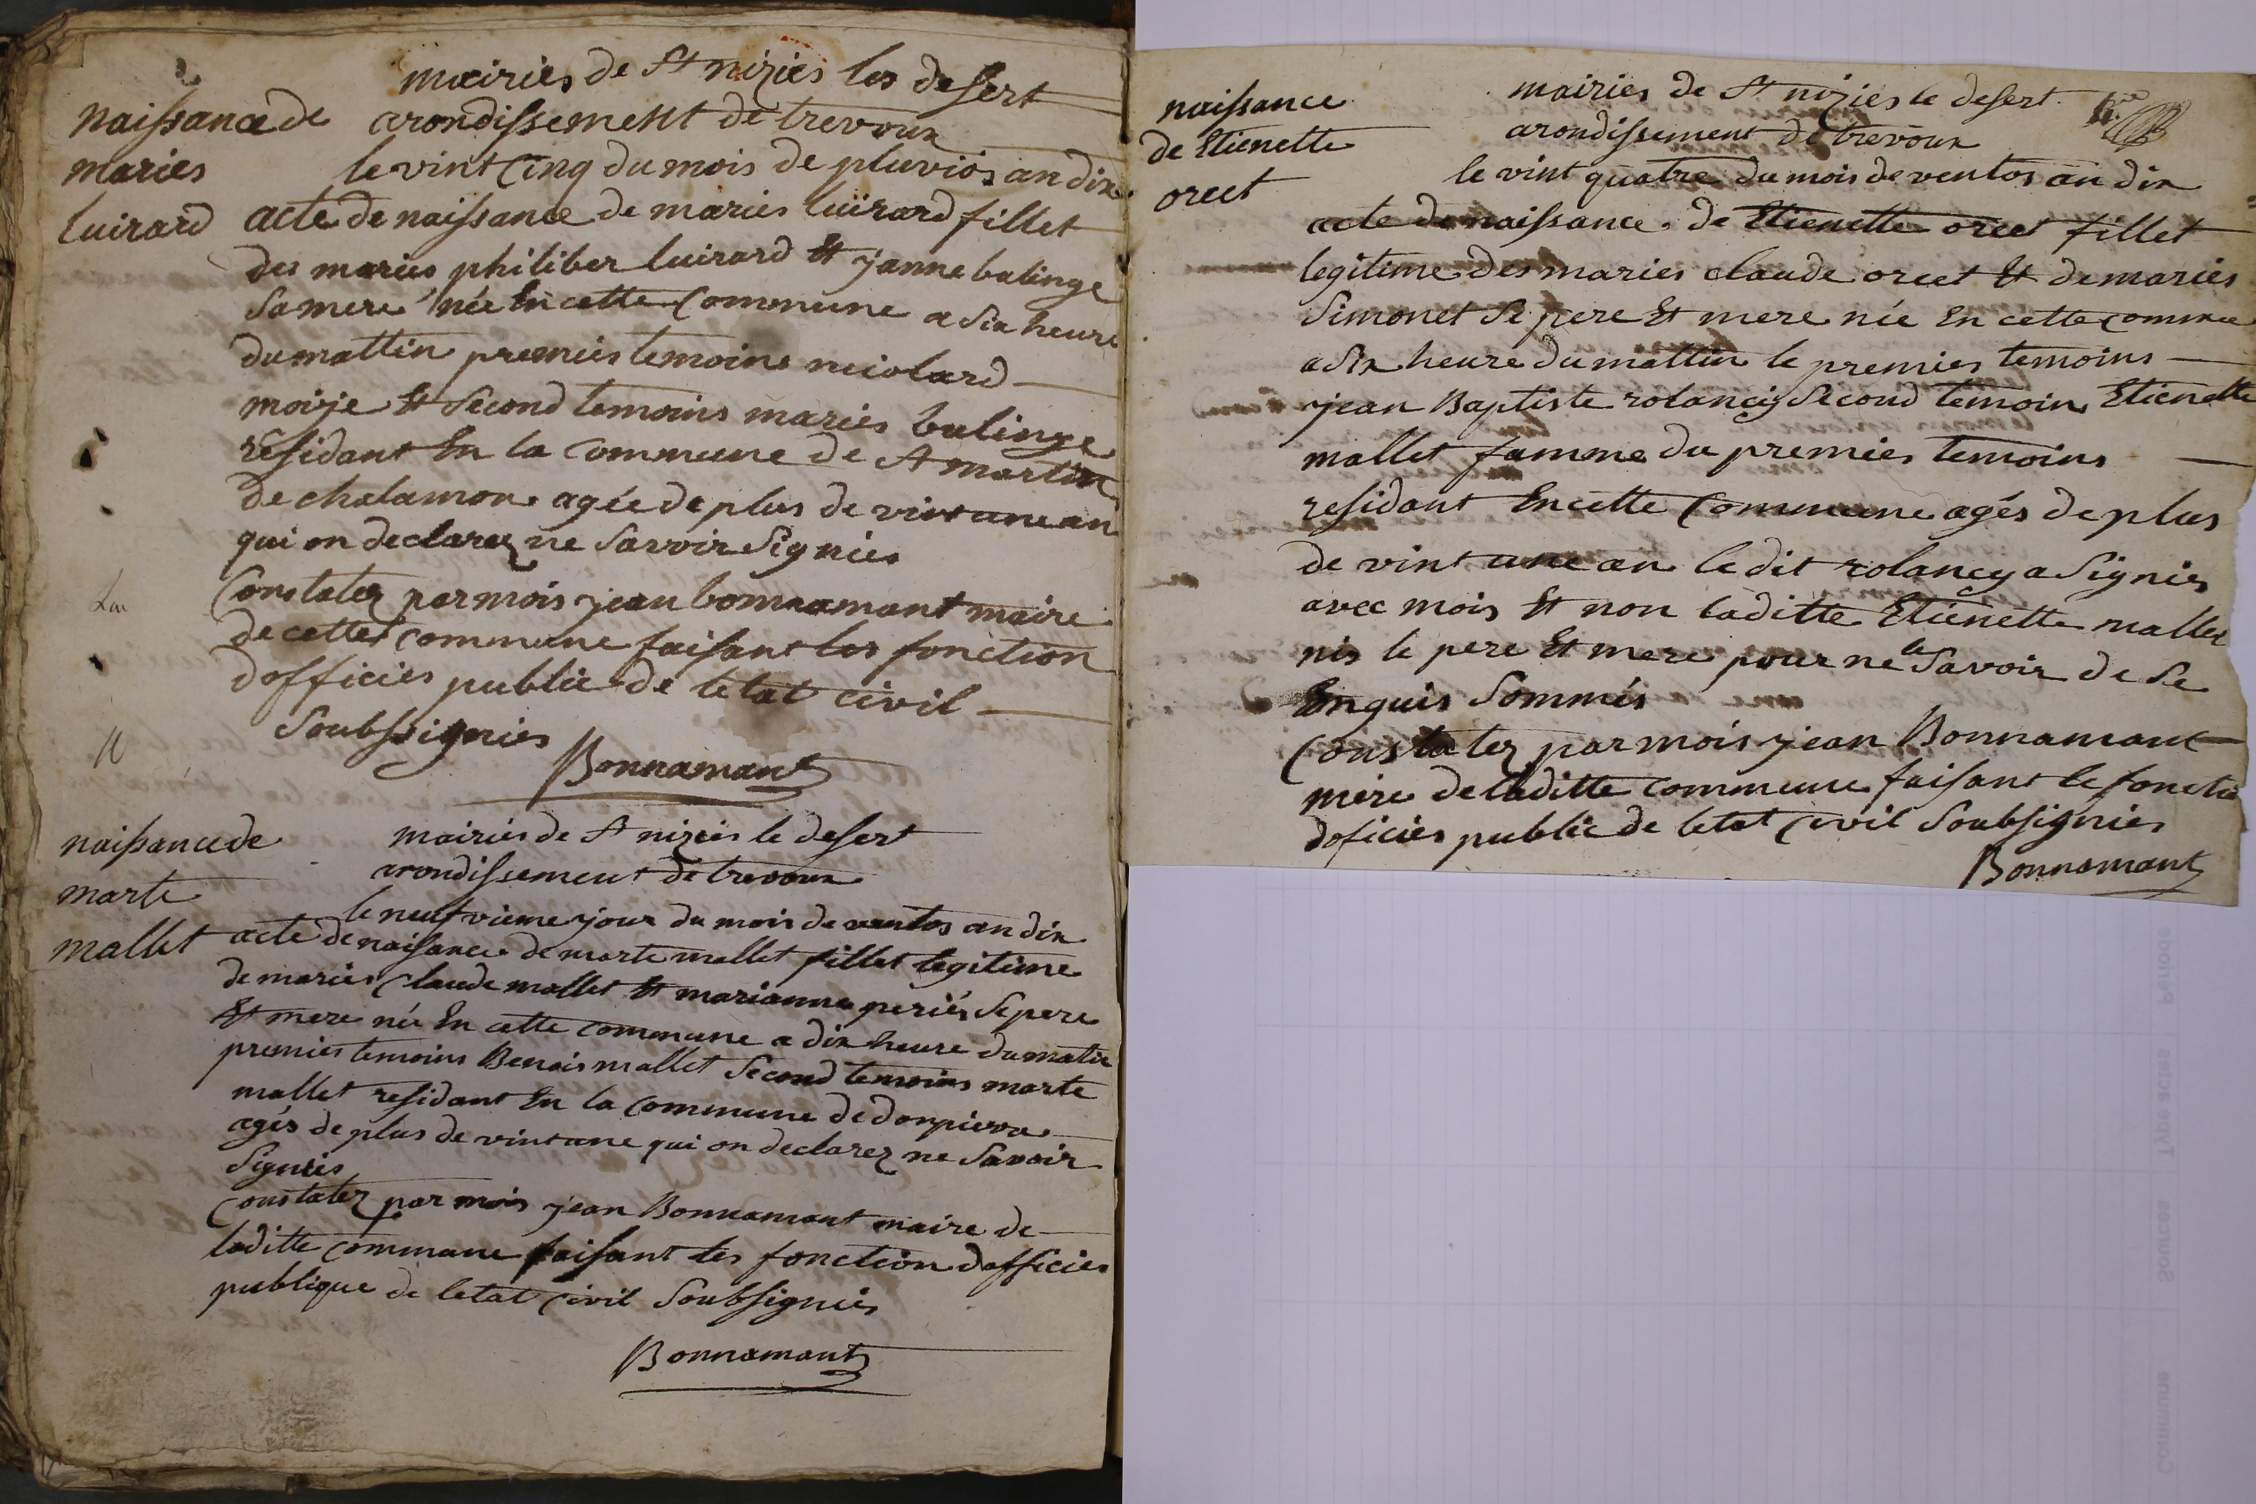 mairies de St nizies les desert
naissance de
maries
luirard
arondissement de trevoux
le vint cinq du mois de pluvios an dix
acte de naissance de maries luirard fillet
des maries philiber luirard Et janne balinge
sa mere née En cette Commune a six heure
du mattin premies temoins
moije Et Second temoins maries balinge
residant En la Commune de St martin
de chalamon agée de plus de vint une an
qui on declarez ne savoir Signies
Constatez par mois jean bonnamant maire
de cettes commune faisant les fonction
dofficies public de letat civil
Soubssignies
Bonnamant
naissance de
marte
mallet
mairies de St nizies le desert
arondissement de trevoux
le neufvieme jour du mois de ventos an dix
acte de naissance de marte mallet fillet legitime
de maries Claude mallet Et marianne periés Se pere
Et mere née En cette commune a dix heure du matin
premies temoins Benois mallet Second temoins marte
mallet residant En la Commune de donpierre
agés de plus de vint une qui on declarez ne Savoir
Signiés
Constatez par mois jean Bonnamant maire de
laditte commune faisant les fonction dofficies
publique de letat Civil Soubsignies
Bonnamant
naissance
de Etienette
orcet
mairies de St nizies le desert
arondissement de trevoux
le vint quatre du mois de ventos an dix
acte de naissance de Etienette orcet fillet
legitime des maries claude orcet Et de maries
Simonet Se pere Et mere née En cette comune
a six heure du mattin le premies temoins
jean Baptiste rolancy Second temoin Etienette
mallet famme du premies temoins
residant En cette Commune agés de plus
de vint une an ledit rolancy a Signies
avec mois Et non laditte Etienette mallet
nis le pere Et mere pour ne le Savoir de Se
Enquis Sommés
Constatez par mois jean Bonnamant
mere de laditte commune faisant le fonctio
doficies public de letat Civil Soubsignies
Bonnamant